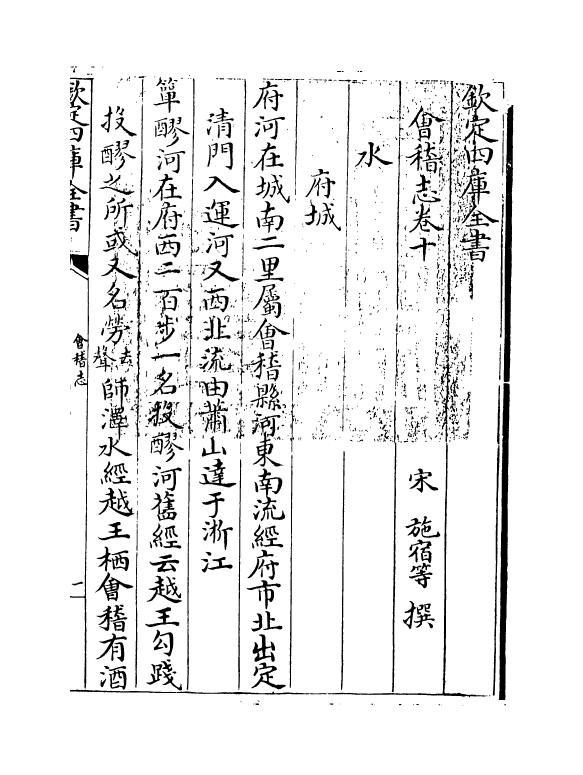 欽定四庫全書
會稽志卷十
宋 施宿等 撰
水
府城
府河在城南二里屬會稽縣河東南流經府市北出定
清門入運河又西北流由蕭山達于浙江
簞醪河在府西二百步一名投醪河舊經云越王勾踐
投醪之所或又名勞去聲師澤水經越王栖會稽有酒
欽定四庫全書
會稽志